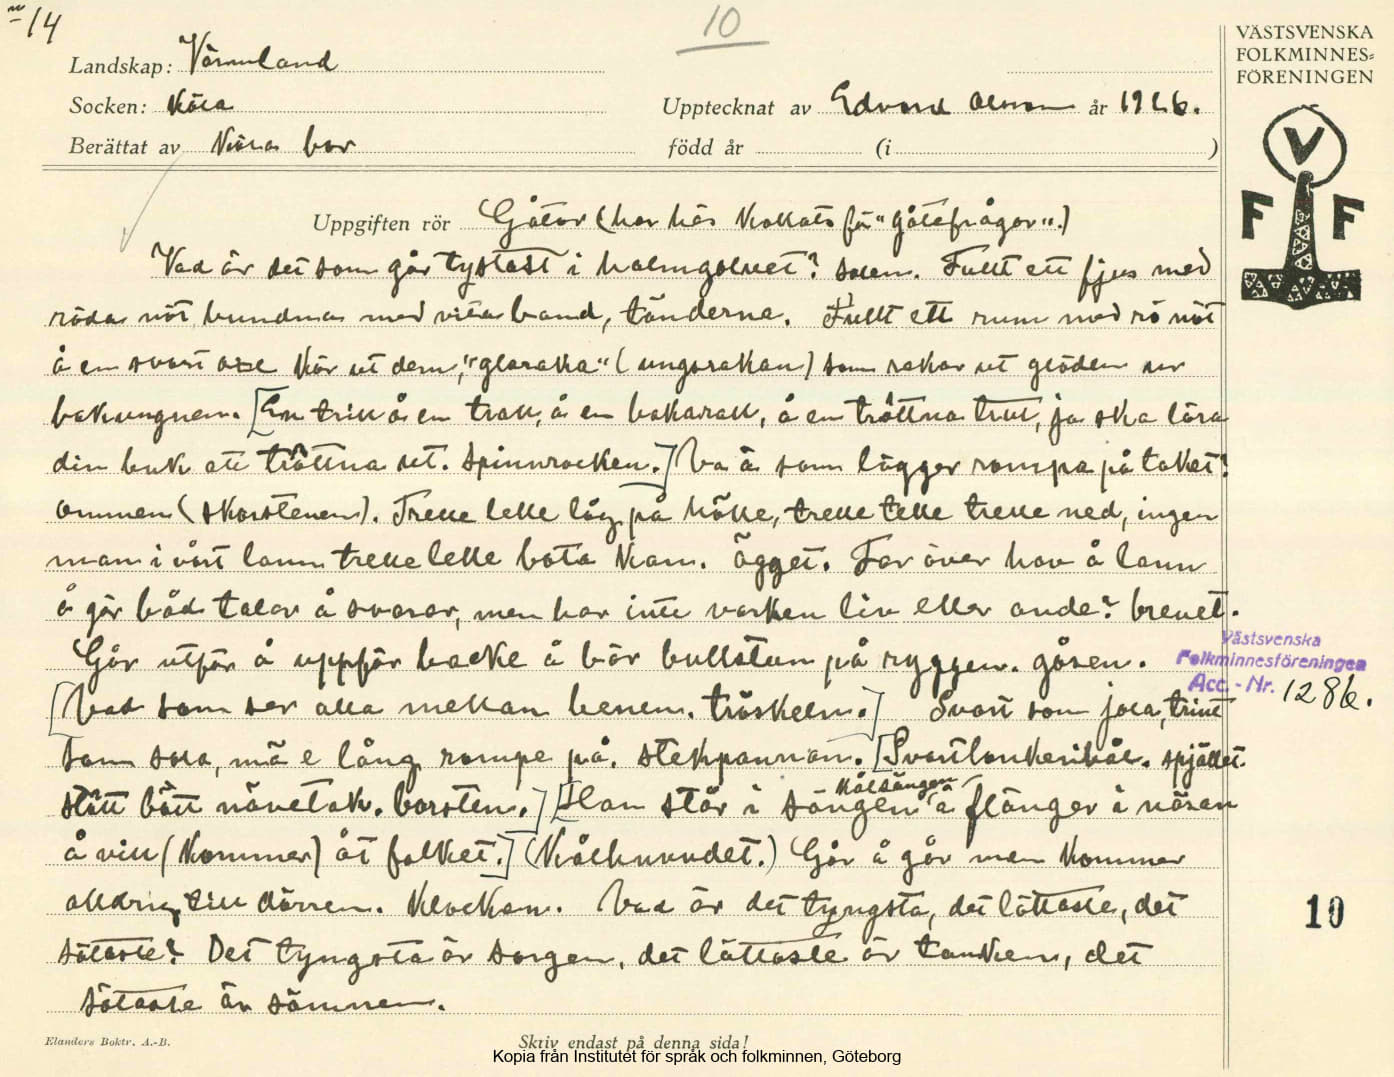 14
10
VÄSTSVENSKA
FOLKMINNES=
FÖRENINGEN
Landskap: Värmland
Socken: Köla
Upptecknat av Edvard Olsson år 1926.
Berättat av Köla bor
född år (i )
V
F F
Uppgiften rör Gåtor (har hös kallats för "gåtefrågor".)
Vad är det som går tystast i halmgolvet? solen. Fullt ett fjus med
röda nöt, bundna med vita band, tänderna. Fullt ett rum med rö nöt
å en svart oxe kör ut dem, "gloraka" (ungsrakan) som rakar ut glöden ur
bakungnen. [En trill å en trall, å en bakarall, å en tråttna trut, ja ska lära
din buk att tråttna ut. Spinnrocken.] Va ä som lägger rompa på taket?
ommen (skorstenen). Trelle lelle låg på hölle, trelle lelle trelle ned, ingen
man i vårt lann trelle lelle bota kan. Ägget. Far över hav å lann
å går båd talar å svarar, men har inte varken liv eller ande? brevet.
Går utför å uppför backe å bär bullstun på ryggen. gåsen.
[Vad som ser alla mellan benen. tröskeln.] Svart som jola, trint
som sola, mä e lång rompe på. stekpannan. [Svartlonkerihål. spjället.
stått bått nävetak. borsten.] [Han står i sängen (kålsängen) å flänger i näsan
å vill (kommer) åt folket.] (Kålhuvudet.) Går å går men kommer
aldrig till dörren. Klockan. Vad är det tyngsta, det lättaste, det
sötaste? Det tyngsta är sorgen, det lättaste är tanken, det
sötaste är sömnen.
Västsvenska
Folkminnesföreningen
Acc.-Nr. 1286.
10
Elanders Boktr. A.-B.
Skriv endast på denna sida!
Kopia från Institutet för språk och folkminnen, Göteborg